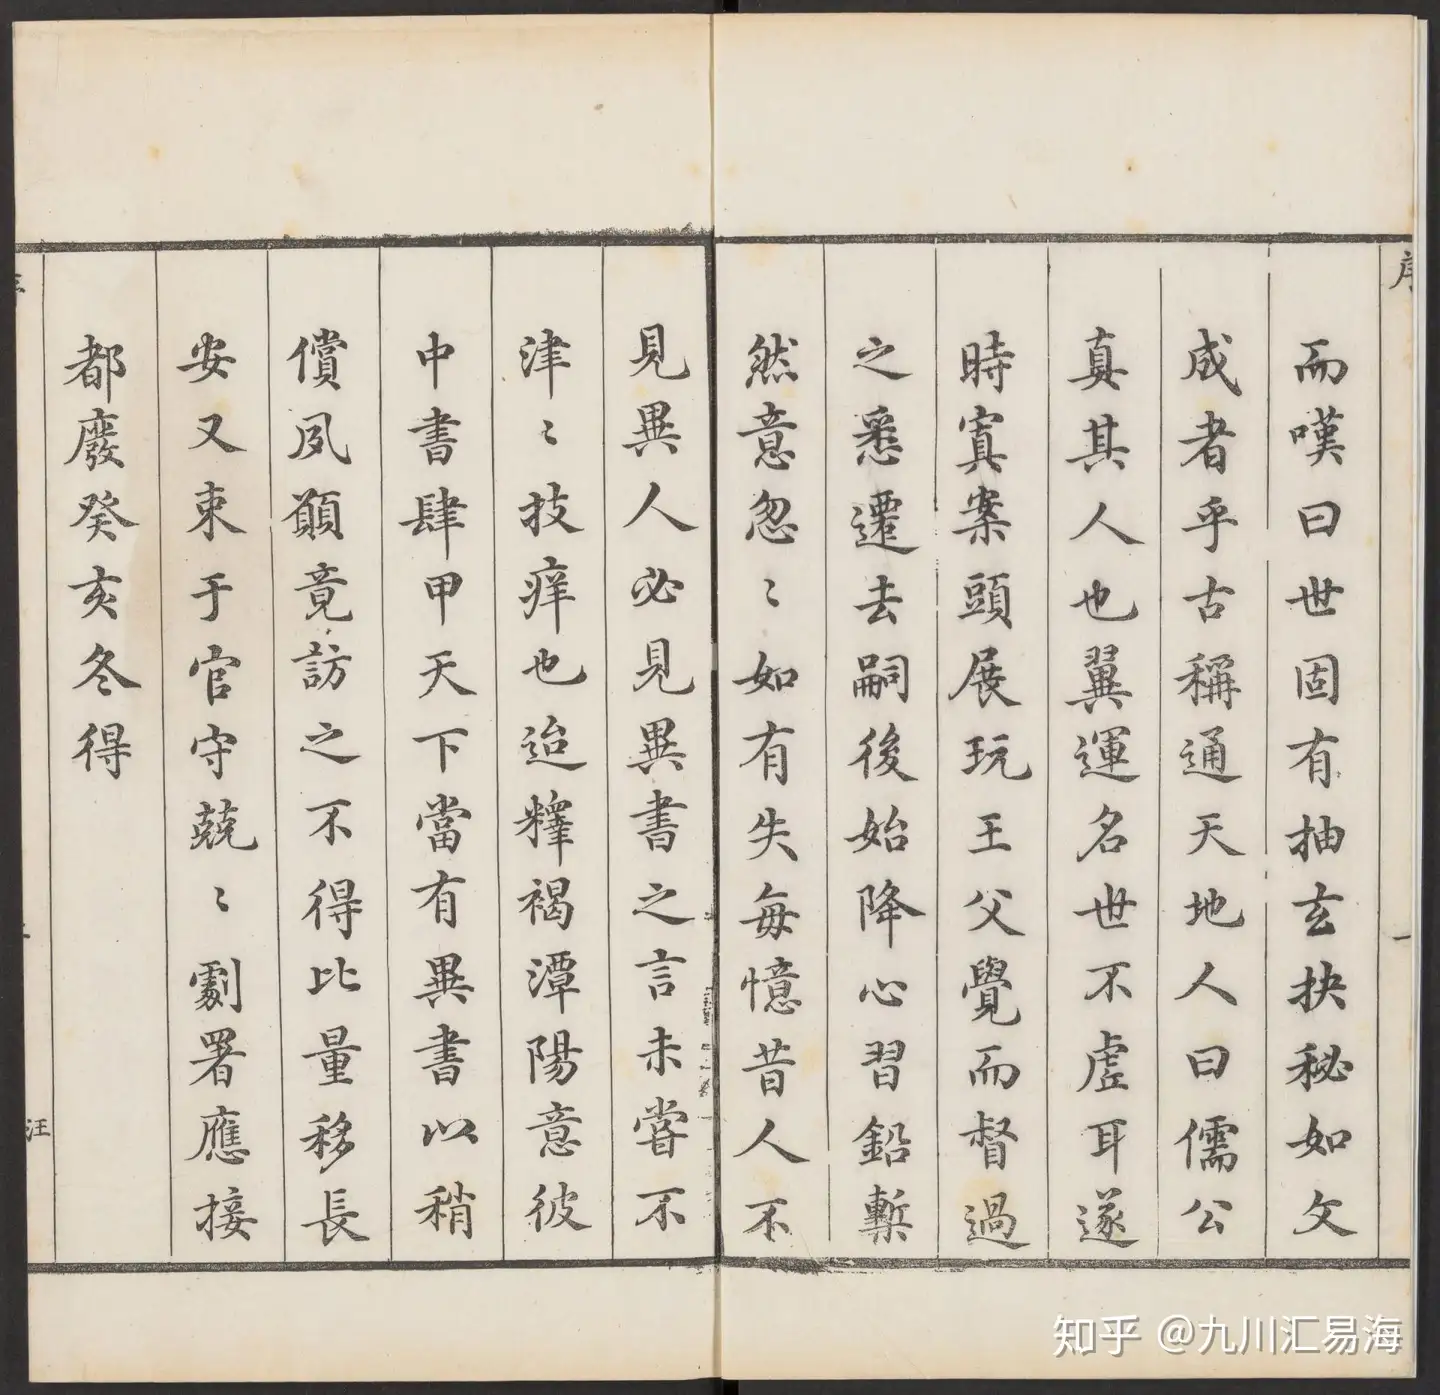 序
而嘆曰世固有抽玄抉秘如文
成者乎古稱通天地人曰儒公
真其人也翼運名世不虗耳遂
時寘案頭展玩王父覺而督過
之悉遷去嗣後始降心習鉛槧
然意忽〻如有失每憶昔人不
一
見異人必見異書之言未甞不
津〻技痒也迨釋褐潭陽意彼
中書肆甲天下當有異書以稍
償夙願竟訪之不得比量移長
安又束于官守兢〻劇署應接
都廢癸亥冬得
汪
知乎 @九川汇易海